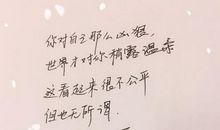 你对自己那么凶狠
世界才对你稍露温柔
这看起来很不公平
但也无所谓.